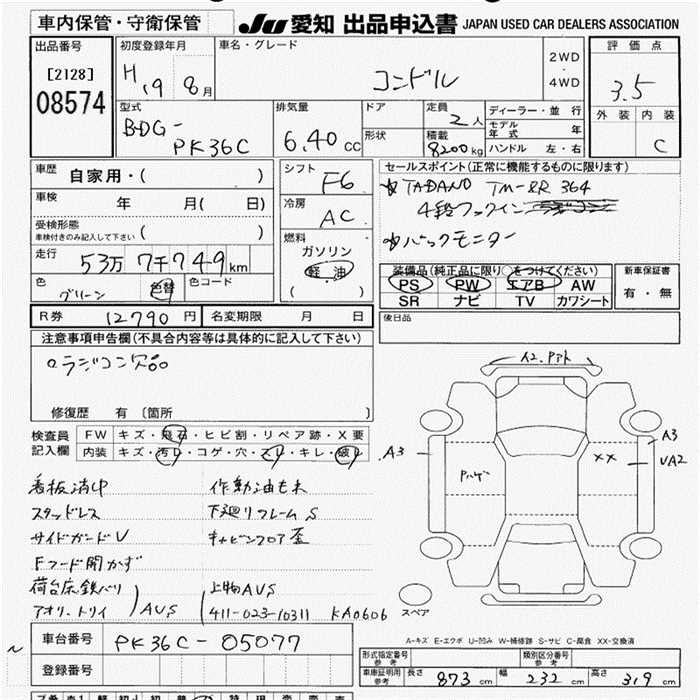 車内保管・守衛保管 JU 愛知 出品申込書 JAPAN USED CAR DEALERS ASSOCIATION
出品番号 初度登録年月 車名・グレード 評価点
[2128] H19 8月 コンドル 2WD・4WD 3.5
08574
型式 排気量 ドア 定員 ディーラー・並行 外装 内装
BDG- 6.40 CC 2人 モデル年式 年
PK36C 形状 積載 8200kg ハンドル 左・右 C
車歴 自家用・( ) シフト F6 セールスポイント(正常に機能するものに限ります)
☆TADANO TM-ZR 364
車検 年 月( 日) 冷房 AC 4段フックイン
受検形態 車検付きのみ記入して下さい ( ) 燃料 ☆バックモニター
走行 53万7千749km ガソリン・軽油 ( )
装備品(純正品に限り○をつけてください) 新車保証書
色 グリーン 色替 色コード PS PW エアB AW 有・無
SR ナビ TV カワシート
R券 12790円 名変期限 月 日 後日品
注意事項申告欄(不具合内容等は具体的に記入して下さい)
○ラジコン欠品
A2.アト
修復歴 有 〔箇所 〕
検査員記入欄 FW キズ・飛石・ヒビ割・リペア跡・X要
内装 キズ・汚レ・コゲ・穴・スレ・キレ・破レ
A3 A3
XX UA2
看板消中 作動油もれ
スタッドレス 下廻リフレームS
サイドガードU キャビンフロア歪
Fフード開かず
荷台床鉄バリ 上物AUS
アオリ・トリイ AUS 411-023-10311 KA0606
スペア
車台番号 PK36C-05077
A-キズ E-エクボ U-凹み W-補修跡 S-サビ C-腐食 XX-交換済
登録番号
形式指定番号 参考 類別区分番号 参考
車庫証明用 参考 長さ 873 cm 幅 232 cm 高さ 319 cm